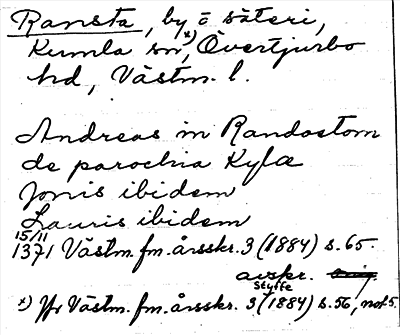 Ransta, by o säteri,
Kumla sn x), Övertjurbo
hd, Västm. l.
Andreas in Randastom
de parochia Kylæ
Jonis ibidem
Lauris ibidem
15/11
1371 Västm. fm. årsskr. 3 (1884) s. 65.
avskr.
Styffe
x) Jfr Västm. fm. årsskr. 3 (1884) s. 56, not 5.